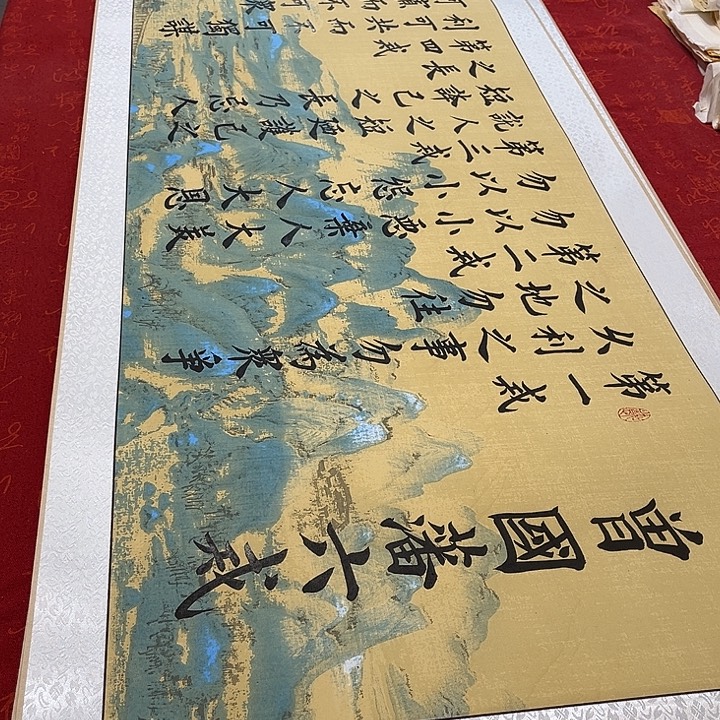 曾國藩六戒
第一戒
久利之事勿為眾爭
之地勿往
第二戒
勿以小惡棄人大美
勿以小怨忘人大恩
第三戒
說人之短迺護己之
短誇己之長乃忌人
之長
第四戒
利可共而不可獨謀
可寡而不可眾